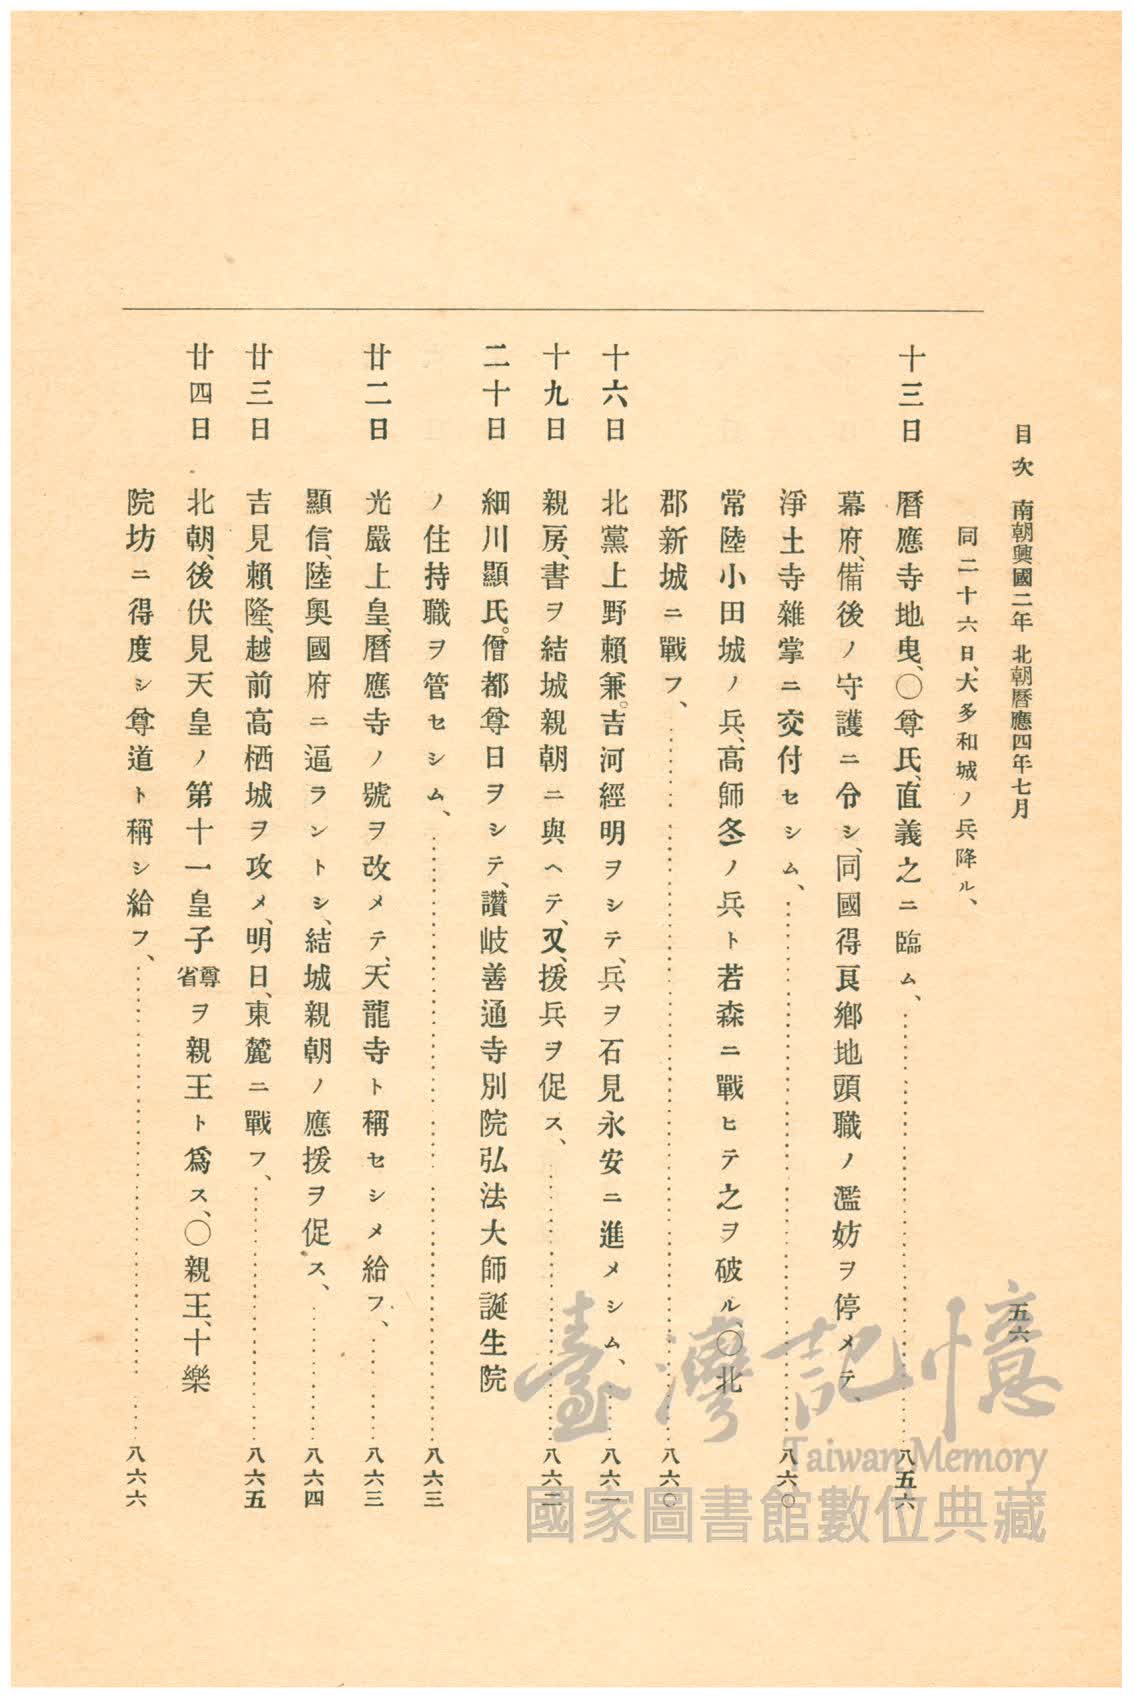 目次 南朝興國二年 北朝曆應四年七月 五六
同二十六日、大多和城ノ兵降ル、
十三日 曆應寺地曳、〇尊氏、直義之ニ臨ム、……八五六
幕府、備後ノ守護ニ令シ、同國得良鄕地頭職ノ濫妨ヲ停メテ、
淨土寺雜掌ニ交付セシム、……八六〇
常陸小田城ノ兵、高師冬ノ兵ト若森ニ戰ヒテ之ヲ破ル、〇北
郡新城ニ戰フ、……八六〇
十六日 北黨上野賴兼。吉河經明ヲシテ、兵ヲ石見永安ニ進メシム、……八六一
十九日 親房、書ヲ結城親朝ニ與ヘテ、又、援兵ヲ促ス、……八六二
二十日 細川顯氏。僧都尊日ヲシテ、讚岐善通寺別院弘法大師誕生院
ノ住持職ヲ管セシム、……八六三
廿二日 光嚴上皇、曆應寺ノ號ヲ改メテ、天龍寺ト稱セシメ給フ、……八六三
顯信、陸奧國府ニ逼ラントシ、結城親朝ノ應援ヲ促ス、……八六四
廿三日 吉見賴隆、越前高栖城ヲ攻メ、明日、東麓ニ戰フ、……八六五
廿四日 北朝、後伏見天皇ノ第十一皇子尊省ヲ親王ト爲ス、〇親王、十樂
院坊ニ得度シ尊道ト稱シ給フ、……八六六
臺灣記憶
Taiwan Memory
國家圖書館數位典藏